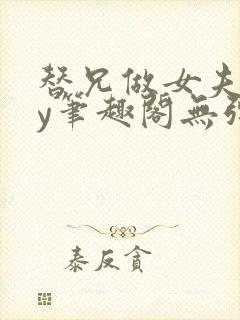 替兄做女夫
y笔趣阁無弹
泰反貪